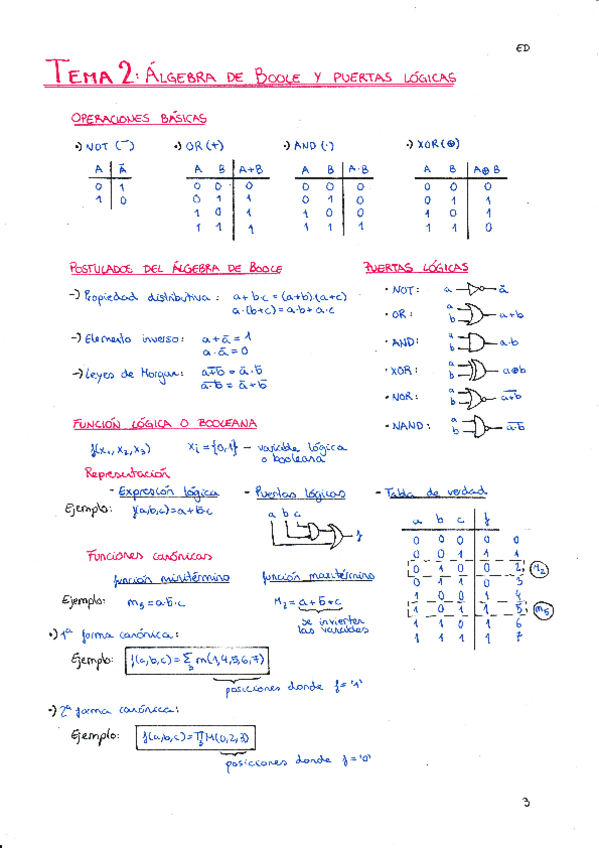 ED
TEMA 2: ÁLGEBRA DE BOOLE Y PUERTAS LÓGICAS
OPERACIONES BÁSICAS
·) NOT (¯) ·) OR (+) ·) AND (·) ·) XOR (⊕)
A Ā A B A+B A B A·B A B A⊕B
0 1 0 0 0 0 0 0 0 0 0
1 0 0 1 1 0 1 0 0 1 1
1 0 1 1 0 0 1 0 1
1 1 1 1 1 1 1 1 0
POSTULADOS DEL ÁLGEBRA DE BOOLE PUERTAS LÓGICAS
-) Propiedad distributiva: a+b·c = (a+b)·(a+c)
a·(b+c) = a·b + a·c
-) Elemento inverso: a+ā = 1
a·ā = 0
-) Leyes de Morgan: a̅+̅b̅ = ā·b̅
a̅·̅b̅ = ā+b̅
· NOT: a ā
· OR: a b a+b
· AND: a b a·b
· XOR: a b a⊕b
· NOR: a b a̅+̅b̅
· NAND: a b a̅·̅b̅
FUNCIÓN LÓGICA O BOOLEANA
f(x₁, x₂, x₃) xᵢ = {0,1} – variable lógica
o booleana
Representación
- Expresión lógica - Puertas lógicas - Tabla de verdad
Ejemplo: f(a,b,c) = a+b̅·c a b c f
a b c f
0 0 0 0 0
0 0 1 1 1
0 1 0 0 2 M₂
0 1 1 0 3
1 0 0 1 4
1 0 1 1 5 m₅
1 1 0 1 6
1 1 1 1 7
Funciones canónicas
función minitérmino función maxitérmino
Ejemplo: m₅ = a·b̅·c M₂ = a+b̅+c
se invierten
las variables
·) 1ª forma canónica:
Ejemplo: f(a,b,c) = Σ₃ m(1,4,5,6,7)
posiciones donde f='1'
·) 2ª forma canónica:
Ejemplo: f(a,b,c) = ∏₃ M(0,2,3)
posiciones donde f='0'
3